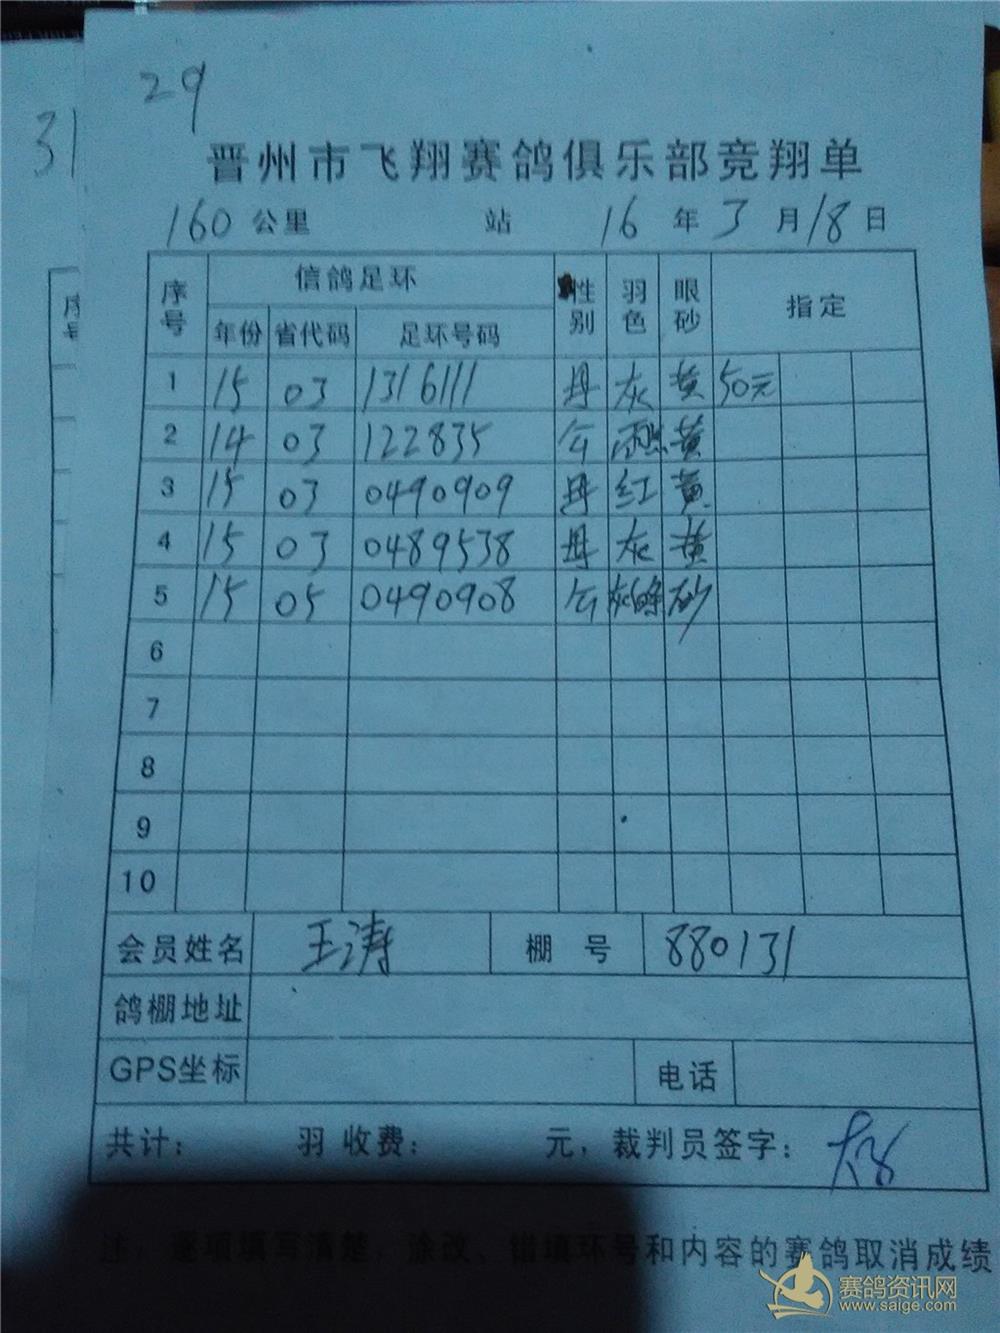 29
31
晋州市飞翔赛鸽俱乐部竞翔单
160 公里 站 16 年 3 月 18 日
序号 信鸽足环 性别 羽色 眼砂 指定
年份 省代码 足环号码
1 15 03 1316111 灰 黄 50元
2 14 03 122835 公 雨点 黄
3 15 03 0490909 红 黄
4 15 03 0489538 灰 黄
5 15 05 0490908 公 砂
6
7
8
9
10
会员姓名 王涛 棚号 880131
鸽棚地址
GPS坐标 电话
共计: 羽 收费: 元, 裁判员签字:
注: 逐项填写清楚, 涂改、错填环号和内容的赛鸽取消成绩
赛鸽资讯网
www.saige.com